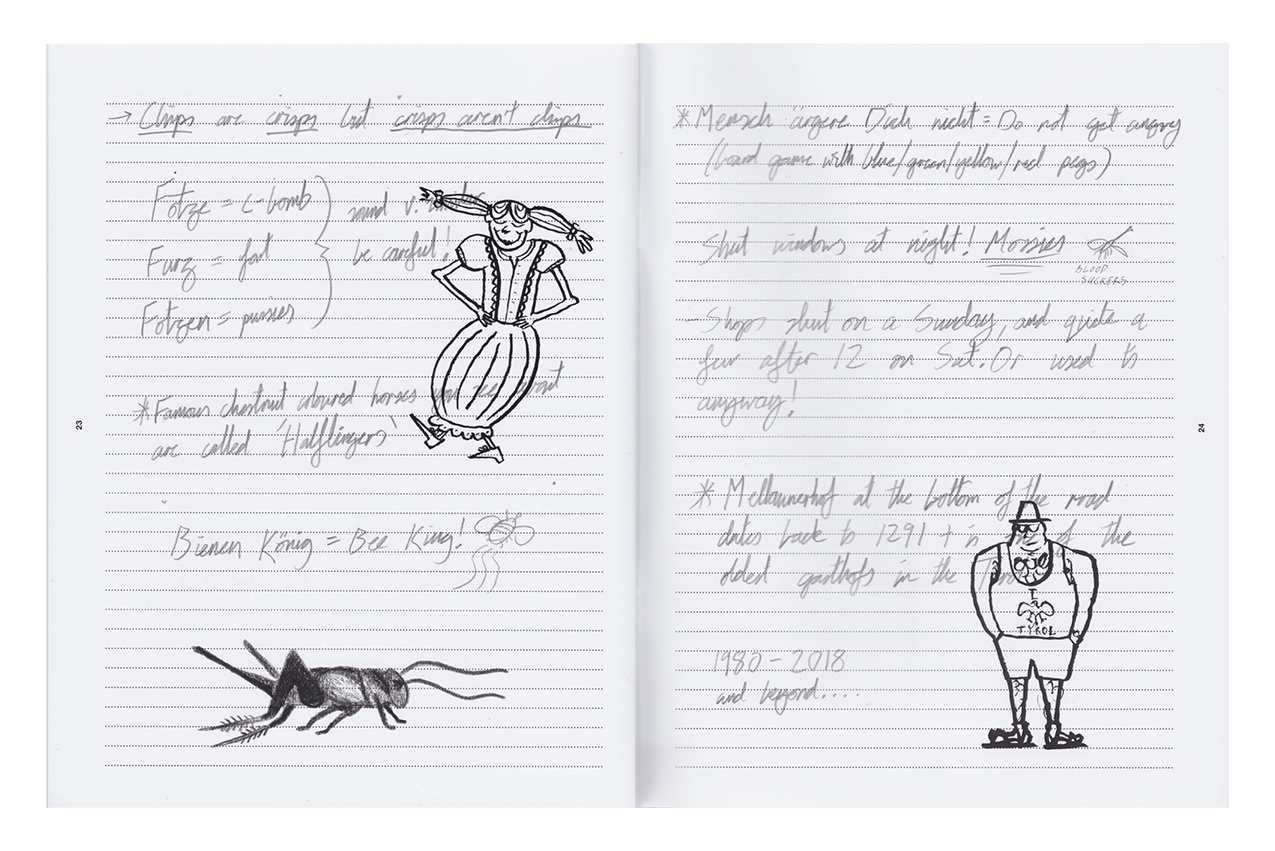 → Chips are crisps but crisps aren't chips.
Fotze = C-bomb
Furz = fart
Fotzen = pussies
sound v. similar
be careful!
* Famous chestnut coloured horses you see about
are called 'Halflingers'
Bienen König = Bee King!
23
* Mensch ärgere Dich nicht = Do not get angry
(board game with blue/green/yellow/red pegs)
Shut windows at night! Mossies
BLOOD
SUCKERS
- Shops shut on a Sunday, and quite a
few after 12 on Sat. Or used to
anyway!
* Mellaunerhof at the bottom of the road
dates back to 1291 + is one of the
oldest gasthofs in the Tyrol
I
TYROL
1980 - 2018
and beyond....
24